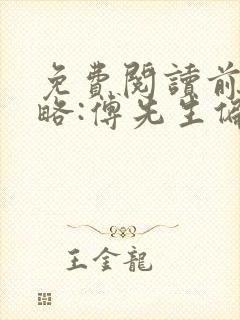 免費閱讀前
略:傅先生偏
王金龍